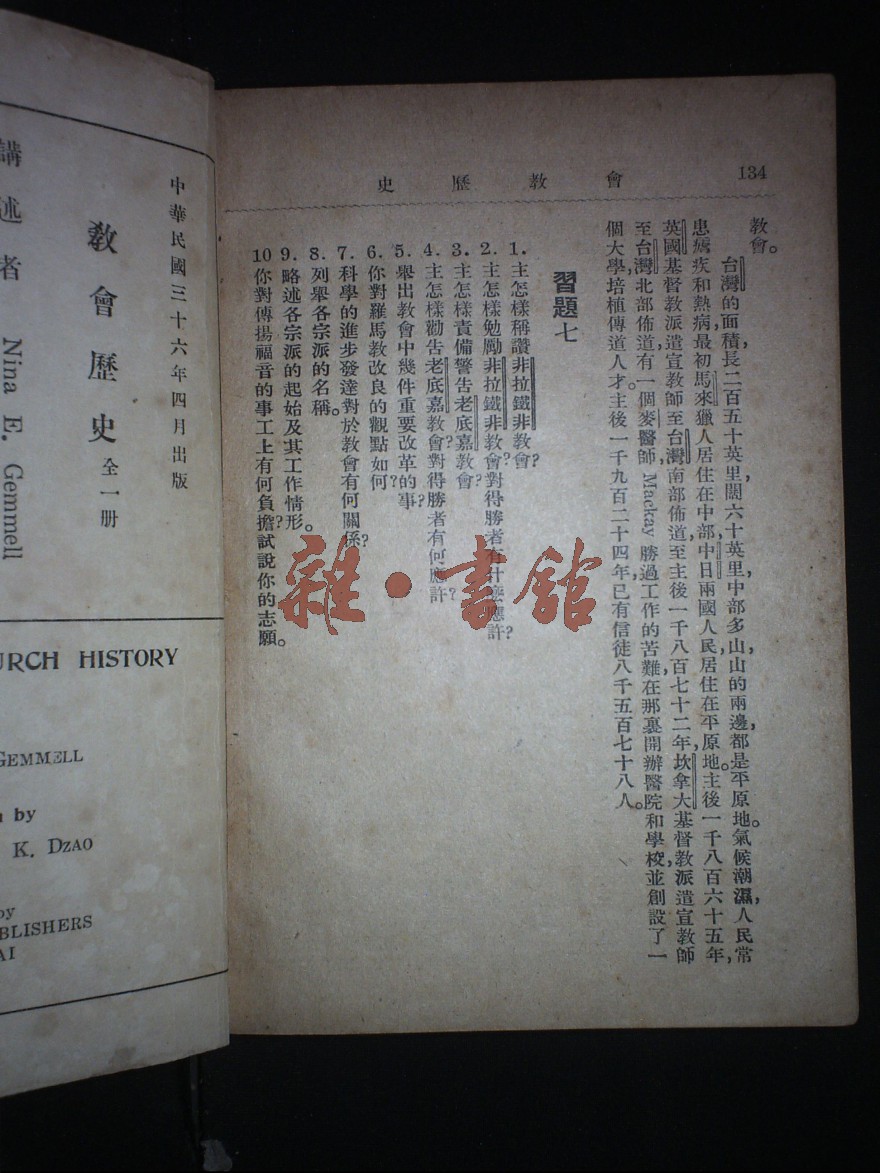 134
會教歷史
教會。
台灣的面積,長二百五十英里,闊六十英里,中部多山,山的兩邊,都是平原地。氣候潮濕,人民常
患瘧疾和熱病,最初馬來獵人居住在中部,中日兩國人民,居住在平原地。主後一千八百六十五年,
英國基督教派遣宣教師至台灣南部佈道,至主後一千八百七十二年,坎拿大基督教派遣宣教師
至台灣北部佈道,有一個麥醫師,Mackay 勝過工作的苦難,在那裏開辦醫院和學校,並創設了一
個大學,培植傳道人才。主後一千九百二十四年,已有信徒八千五百七十八人。
習題七
1. 主怎樣稱讚非拉鐵非教會?
2. 主怎樣勉勵非拉鐵非教會?對得勝者有什麼應許?
3. 主怎樣責備警告老底嘉教會?
4. 主怎樣勸告老底嘉教會?對得勝者有何應許?
5. 舉出教會中幾件重要改革的事?
6. 你對羅馬教改良的觀點如何?
7. 科學的進步發達對於教會有何關係?
8. 列舉各宗派的名稱。
9. 略述各宗派的起始及其工作情形。
10 你對傳揚福音的事工上有何負擔?試說你的志願。
雜·書館
中華民國三十六年四月出版
教會歷史 全一册
講述者 Nina E. Gemmell
URCH HISTORY
GEMMELL
by
K. DZAO
by
BLISHERS
AI